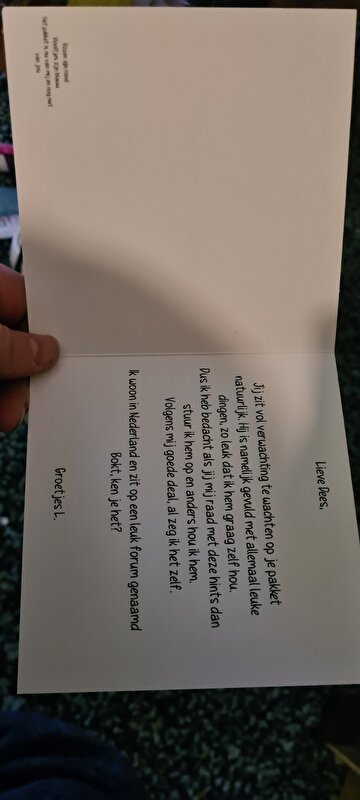 Rozen zijn rood
Viooltjes zijn blauw
Het pakket is nu van mij en nog niet
van jou
Lieve Dees,
Jij zit vol verwachting te wachten op je pakket
natuurlijk. Hij is namelijk gevuld met allemaal leuke
dingen, zo leuk dat ik hem graag zelf hou.
Dus ik heb bedacht als jij mij raad met deze hints dan
stuur ik hem op en anders hou ik hem.
Volgens mij goede deal, al zeg ik het zelf.
Ik woon in Nederland en zit op een leuk forum genaamd
Bokt, ken je het?
Groetjes L.